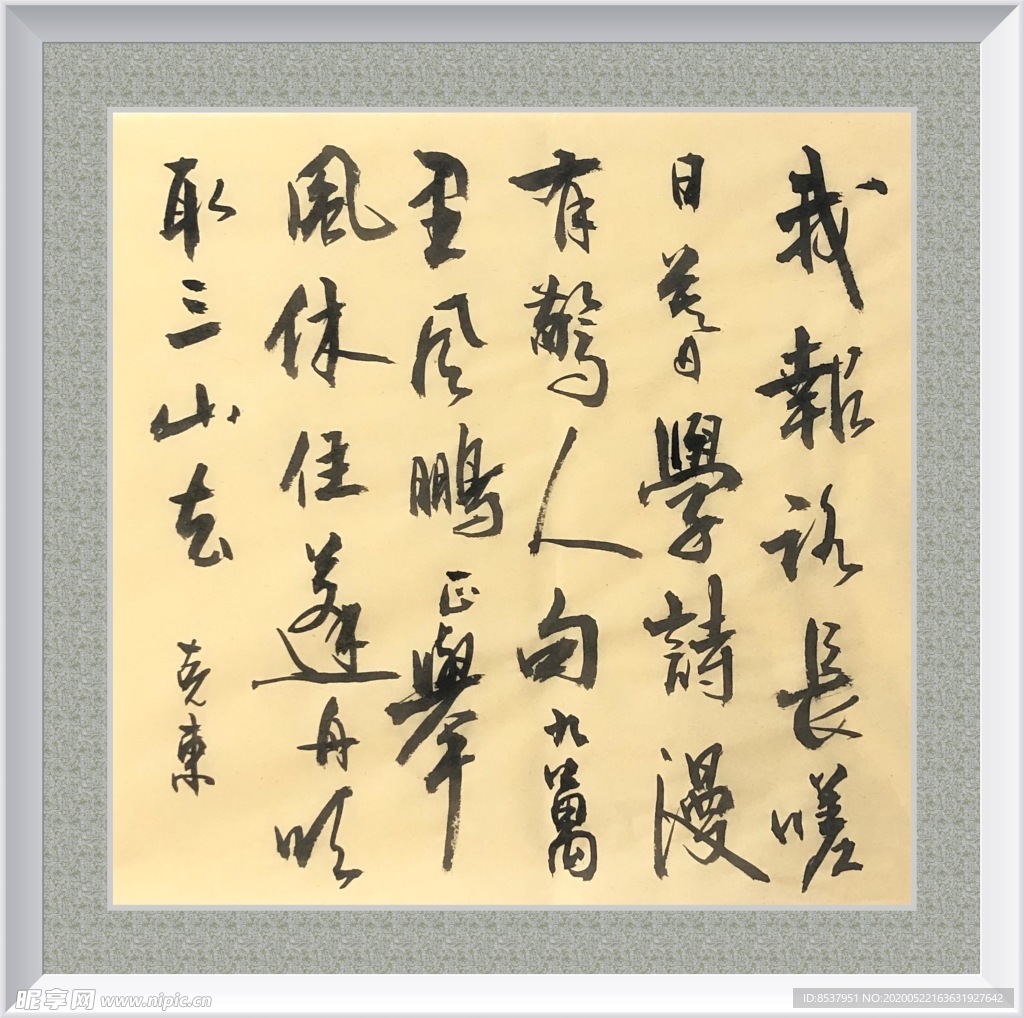 我報路長嗟
日暮學詩漫
有驚人句九萬
里风鵬正舉
風休住蓬舟吹
取三山去
東
昵享网 www.nipic.cn
ID:8537951 NO:20200522163631927642